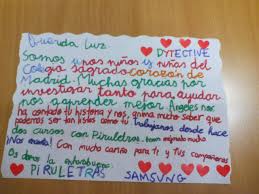 Querida Luz:
DYTECTIVE
Somos unos niños y niñas del
Colegio sagrado corazón de
Madrid. Muchas gracias por
investigar tanto para ayudar
nos aprender mejor. Ángeles nos
ha contado tu historia y nos anima mucho saber que
podemos ser tan listas como tú trabajamos desde hace
dos cursos con Piruletras. hemos mejorado mucho
¡Nos encanta! Con mucho cariño para ti y tus compañeros
Os damos la enhorabuena
PIRULETRAS SAMSUNG